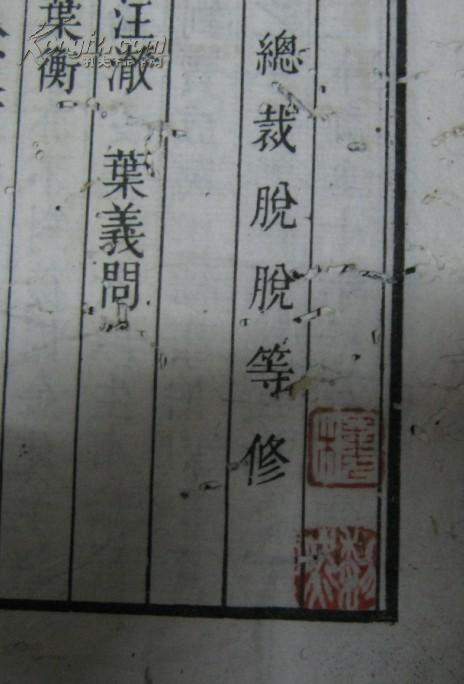 總裁脫脫等修
汪澈 葉義問
葉衡